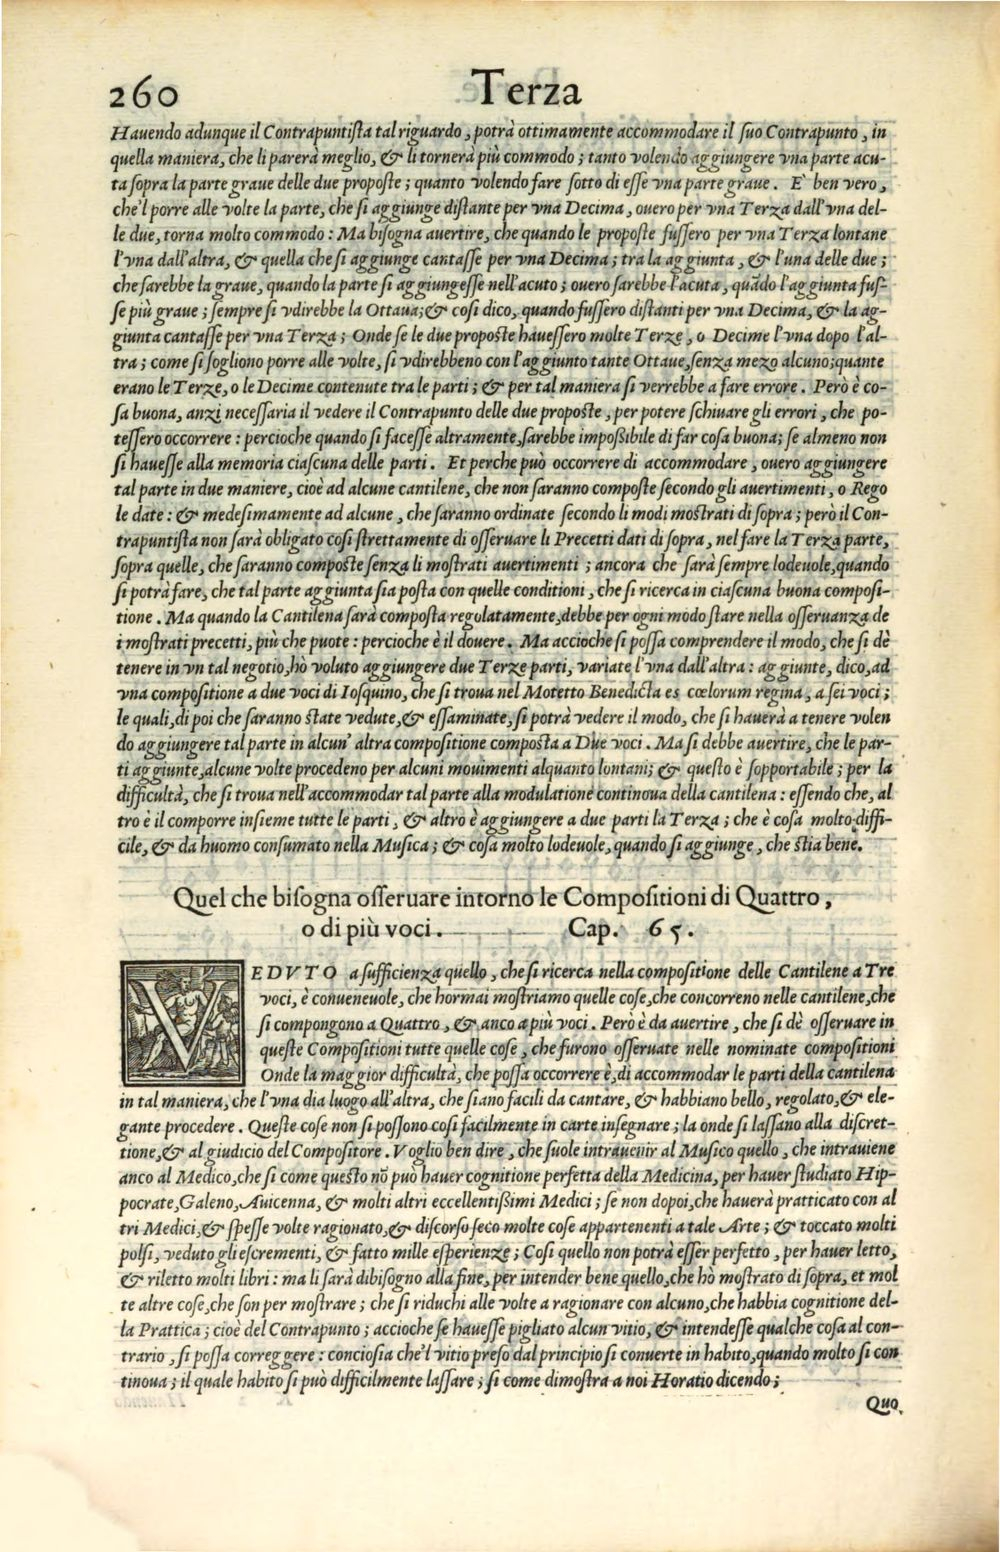 260 Terza
Hauendo adunque il Contrapuntiſta tal riguardo, potrà ottimamente accommodare il ſuo Contrapunto, in
quella maniera, che li parerà meglio, & li tornerà più commodo; tanto volendo aggiungere vna parte acu-
ta ſopra la parte graue delle due propoſte; quanto volendo fare ſotto di eſſe vna parte graue. E' ben vero,
che'l porre alle volte la parte, che ſi aggiunge diſtante per vna Decima, ouero per vna Terza dall'vna del-
le due, torna molto commodo: Ma biſogna auertire, che quando le propoſte fuſſero per vna Terza lontane
l'vna dall'altra, & quella che ſi aggiunge cantaſſe per vna Decima; tra la aggiunta, & l'una delle due;
che ſarebbe la graue, quando la parte ſi aggiungeſſe nell'acuto; ouero ſarebbe l'acuta, quãdo l'aggiunta fuſ-
ſe più graue; ſempre ſi vdirebbe la Ottaua; & coſi dico, quando fuſſero diſtanti per vna Decima, & la ag-
giunta cantaſſe per vna Terza; Onde ſe le due propoſte haueſſero molte Terze, o Decime l'vna dopo l'al-
tra; come ſi ſogliono porre alle volte, ſi vdirebbeno con l'aggiunto tante Ottaue, ſenza mezo alcuno; quante
erano le Terze, o le Decime contenute tra le parti; & per tal maniera ſi verrebbe a fare errore. Però è co-
ſa buona, anzi neceſſaria il vedere il Contrapunto delle due propoſte, per potere ſchiuare gli errori, che po-
teſſero occorrere: percioche quando ſi faceſſe altramente, ſarebbe impoßibile di far coſa buona; ſe almeno non
ſi haueſſe alla memoria ciaſcuna delle parti. Et perche può occorrere di accommodare, ouero aggiungere
tal parte in due maniere, cioè ad alcune cantilene, che non ſaranno compoſte ſecondo gli auertimenti, o Rego
le date: & medeſimamente ad alcune, che ſaranno ordinate ſecondo li modi moſtrati di ſopra; però il Con-
trapuntiſta non ſarà obligato coſi ſtrettamente di oſſeruare li Precetti dati di ſopra, nel fare la Terza parte,
ſopra quelle, che ſaranno compoſte ſenza li moſtrati auertimenti; ancora che ſarà ſempre lodeuole, quando
ſi potrà fare, che tal parte aggiunta ſia poſta con quelle conditioni, che ſi ricerca in ciaſcuna buona compoſi-
tione. Ma quando la Cantilena ſarà compoſta regolatamente, debbe per ogni modo ſtare nella oſſeruanza de
i moſtrati precetti, più che puote: percioche è il douere. Ma accioche ſi poſſa comprendere il modo, che ſi dè
tenere in vn tal negotio, hò voluto aggiungere due Terze parti, variate l'vna dall'altra: aggiunte, dico, ad
vna compoſitione a due voci di Ioſquino, che ſi troua nel Motetto Benedicta es cœlorum regina, a ſei voci;
le quali, di poi che ſaranno ſtate vedute, & eſſaminate, ſi potrà vedere il modo, che ſi hauerà a tenere volen
do aggiungere tal parte in alcun' altra compoſitione compoſta a Due voci. Ma ſi debbe auertire, che le par-
ti aggiunte, alcune volte procedeno per alcuni mouimenti alquanto lontani; & queſto è ſopportabile; per la
difficultà, che ſi troua nell'accommodar tal parte alla modulatione continoua della cantilena: eſſendo che, al
tro è il comporre inſieme tutte le parti, & altro è aggiungere a due parti la Terza; che è coſa molto diffi-
cile, & da huomo conſumato nella Muſica; & coſa molto lodeuole, quando ſi aggiunge, che ſtia bene.
Quel che biſogna oſſeruare intorno le Compoſitioni di Quattro,
o di più voci. Cap. 65.
VEDVTO a ſufficienza quello, che ſi ricerca nella compoſitione delle Cantilene a Tre
voci, è conueneuole, che hormai moſtriamo quelle coſe, che concorreno nelle cantilene, che
ſi compongono a Quattro, & anco a più voci. Però è da auertire, che ſi dè oſſeruare in
queſte Compoſitioni tutte quelle coſe, che furono oſſeruate nelle nominate compoſitioni
Onde la maggior difficultà, che poſſa occorrere è, di accommodar le parti della cantilena
in tal maniera, che l'vna dia luogo all'altra, che ſiano facili da cantare, & habbiano bello, regolato, & ele-
gante procedere. Queſte coſe non ſi poſſono coſi facilmente in carte inſegnare; la onde ſi laſſano alla diſcret-
tione, & al giudicio del Compoſitore. Voglio ben dire, che ſuole intrauenir al Muſico quello, che intrauiene
anco al Medico, che ſi come queſto nõ può hauer cognitione perfetta della Medicina, per hauer ſtudiato Hip-
pocrate, Galeno, Auicenna, & molti altri eccellentißimi Medici; ſe non dopoi, che hauerà pratticato con al
tri Medici, & ſpeſſe volte ragionato, & diſcorſo ſeco molte coſe appartenenti a tale Arte; & toccato molti
polſi, veduto gli eſcrementi, & fatto mille eſperienze; Coſi quello non potrà eſſer perfetto, per hauer letto,
& riletto molti libri: ma li ſarà dibiſogno alla fine, per intender bene quello, che hò moſtrato di ſopra, et mol
te altre coſe, che ſon per moſtrare; che ſi riduchi alle volte a ragionare con alcuno, che habbia cognitione del-
la Prattica; cioè del Contrapunto; accioche ſe haueſſe pigliato alcun vitio, & intendeſſe qualche coſa al con-
trario, ſi poſſa correggere: concioſia che'l vitio preſo dal principio ſi conuerte in habito, quando molto ſi con
tinoua; il quale habito ſi può difficilmente laſſare; ſi come dimoſtra a noi Horatio dicendo;
Quo